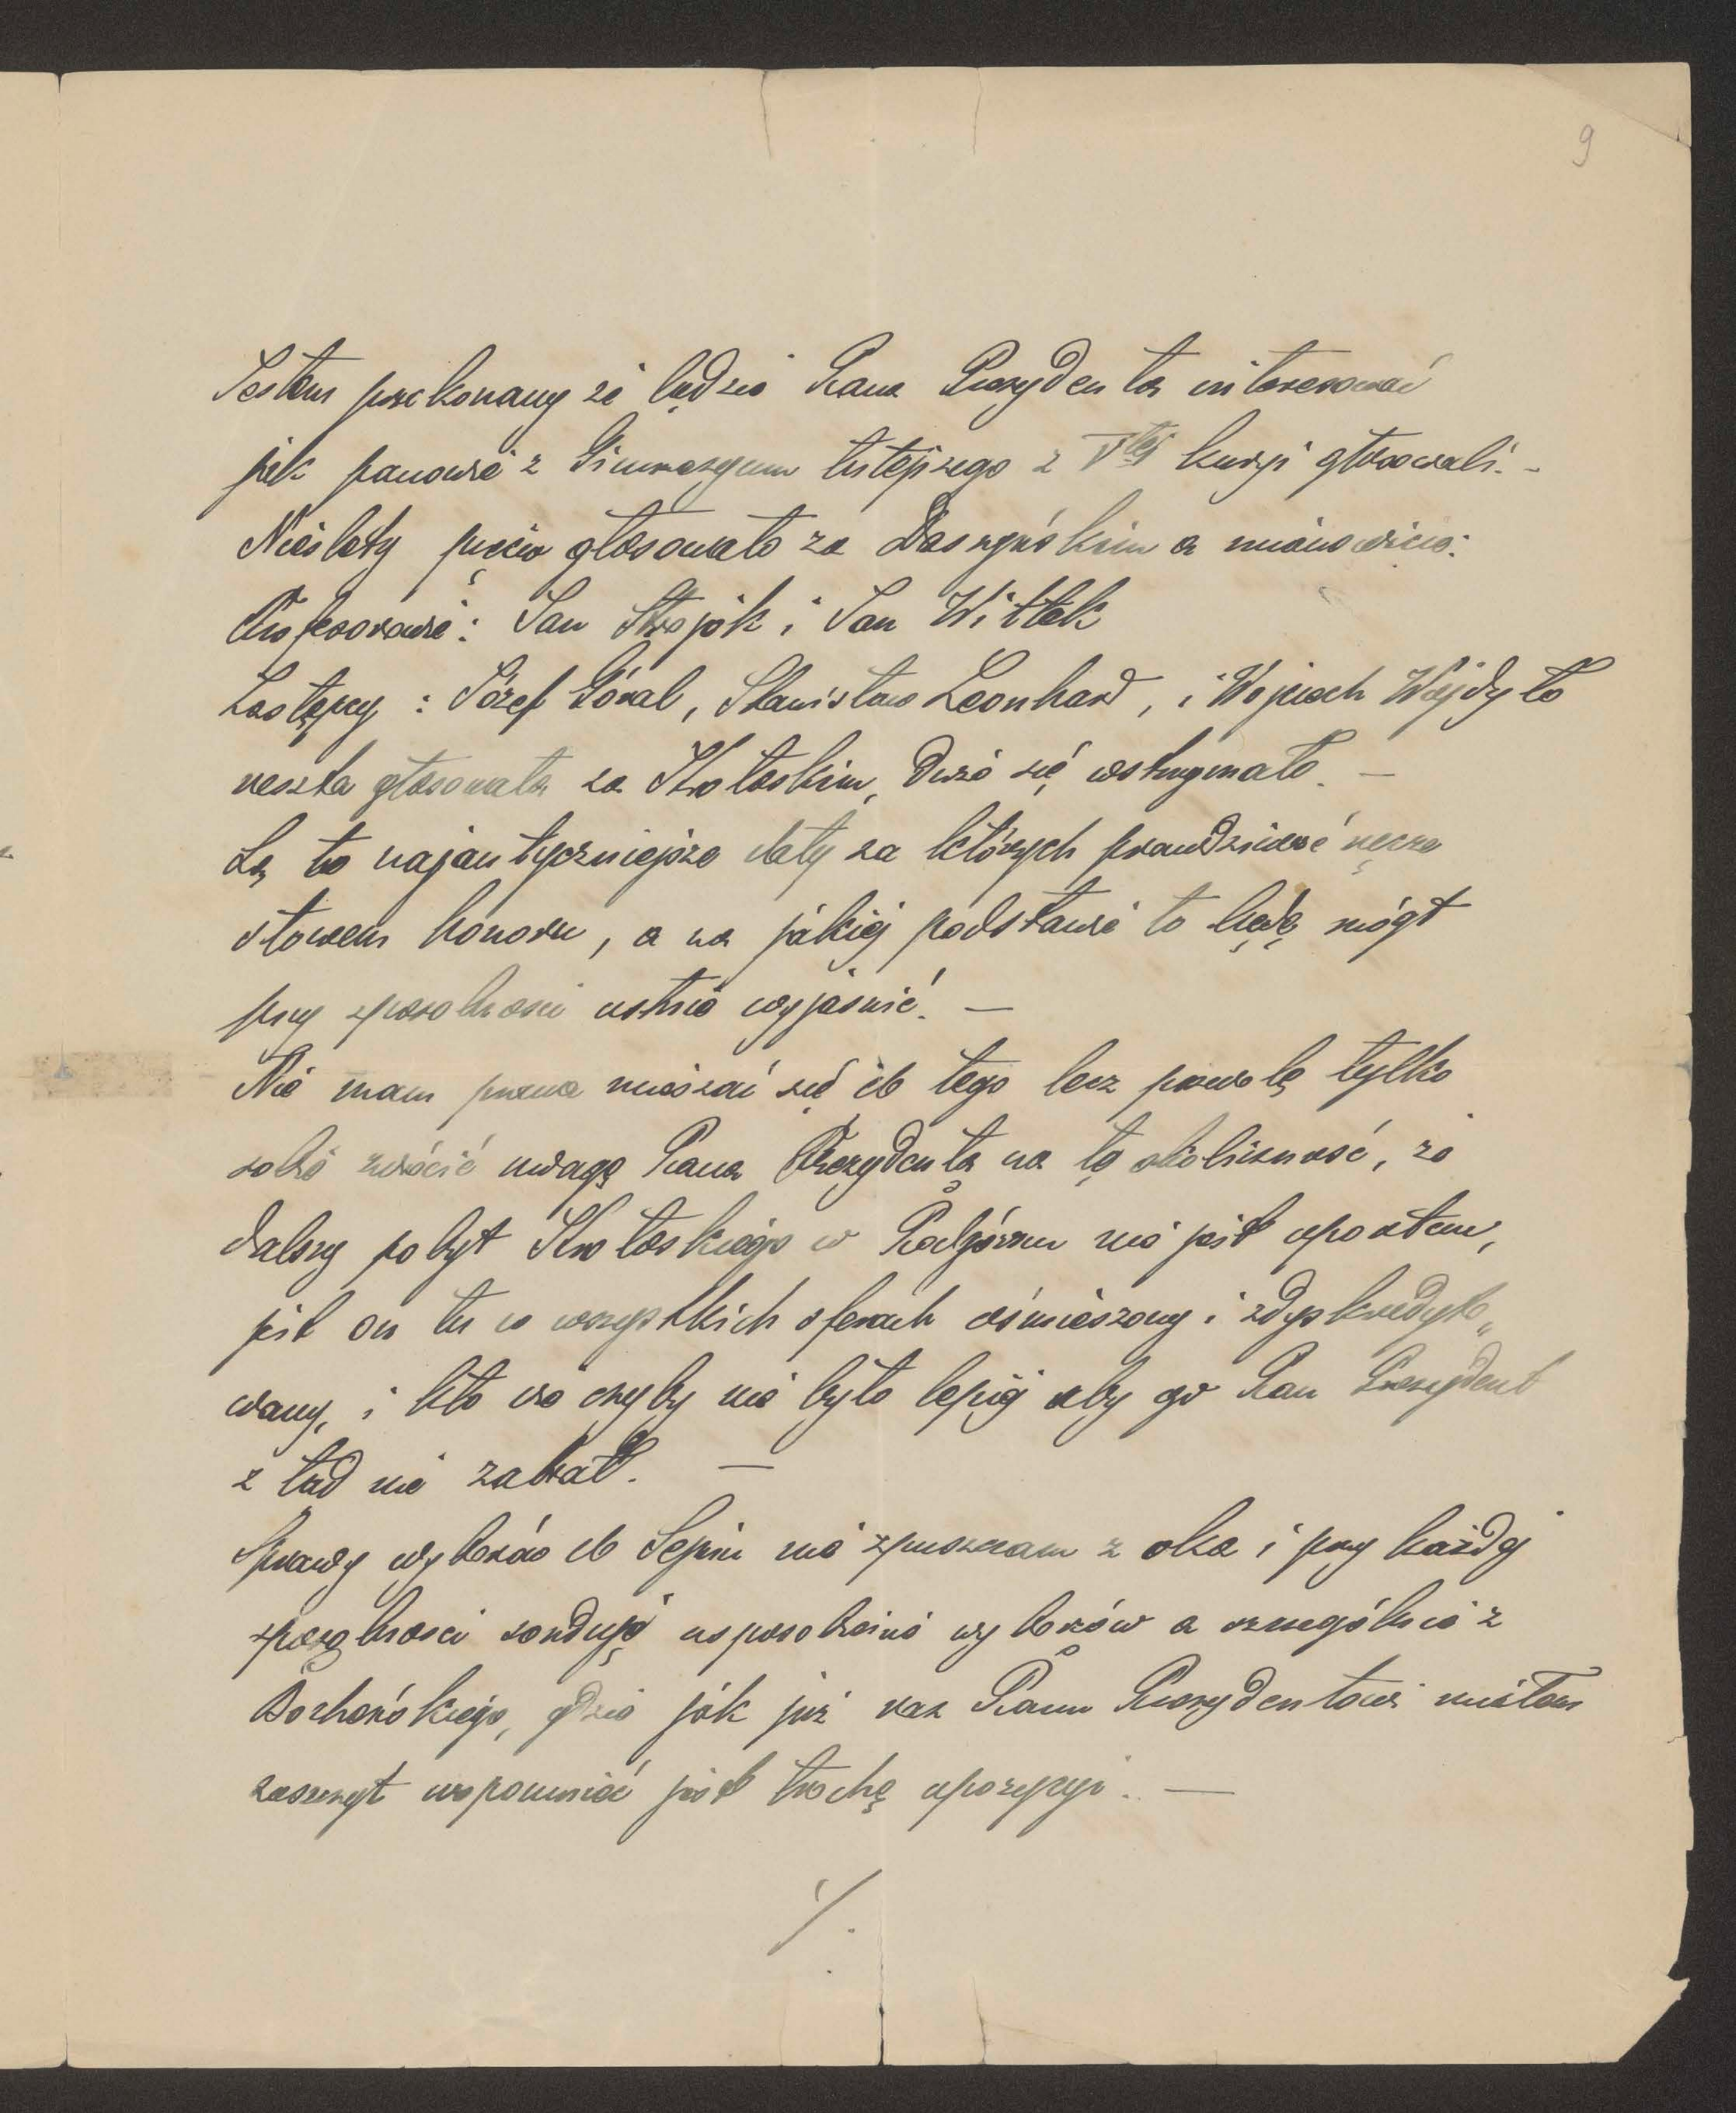 9
Jestem przekonany że będzie Pana Prezydenta interesować
jak panowie z Gimnazyum tutejszego z Vtej kuryi głosowali. -
Niestety pięciu głosowało za Daszyńskim a mianowicie:
Profesorowie: Jan Strojek i Jan Wittek
Zastępcy: Józef Góral, Stanisław Leonhard, i Wojciech Wajdyło
reszta głosowała za Krotoskim, dużo się wstrzymało. —
Są to najautyczniejsze daty za których prawdziwość ręczę
słowem honoru, a na jakiej podstawie to będę mógł
przy sposobności ustnie wyjaśnić. —
Nie mam prawa mieszać się do tego lecz pozwolę tylko
sobie zwrócić uwagę Pana Prezydenta na tę okoliczność, że
dalszy pobyt Krotoskiego w Podgórzu nie jest upoatem,
jest on tu w wszystkich sferach ośmieszony i zdyskredyto„
wany, i kto wie czyby nie było lepiej aby go Pan Prezydent
z tąd nie zabrał. —
Sprawy wyborów do Sejmu nie spuszczam z oka i przy każdej
sposobności sonduję usposobienie wyborców a szczególnie z
Bocheńskiego, gdzie jak już raz Panu Prezydentowi miałem
zaszczyt wspomnieć jest trochę opozycyi. —
./.